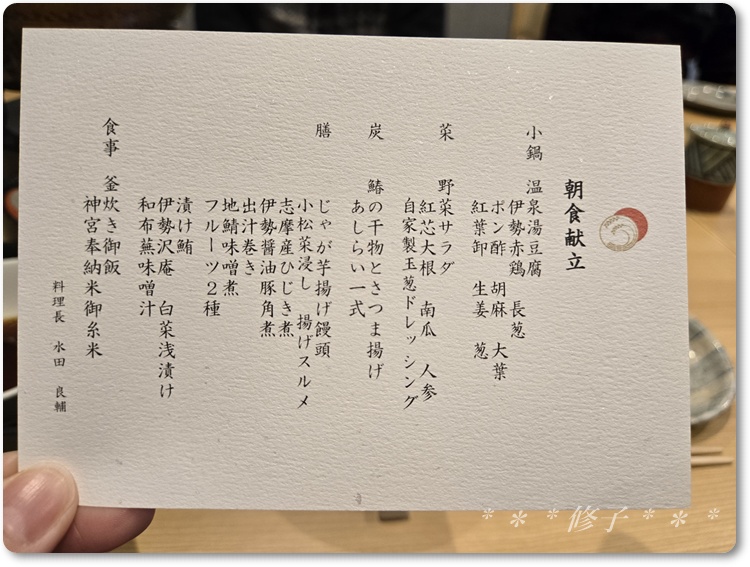 朝食献立
小鍋　温泉湯豆腐
伊勢赤鶏　長葱
ポン酢　胡麻　大葉
紅葉卸　生姜　葱
菜　野菜サラダ
紅芯大根　南瓜　人参
自家製玉葱ドレッシング
炭　鰆の干物とさつま揚げ
あしらい一式
膳　じゃが芋揚げ饅頭
小松菜浸し　揚げスルメ
志摩産ひじき煮
伊勢醤油豚角煮
出汁巻き
地鯖味噌煮
フルーツ２種
漬け鮪
伊勢沢庵　白菜浅漬け
和布蕪味噌汁
食事　釜炊き御飯
神宮奉納米御糸米
料理長　水田　良輔
＊＊＊修子＊＊＊